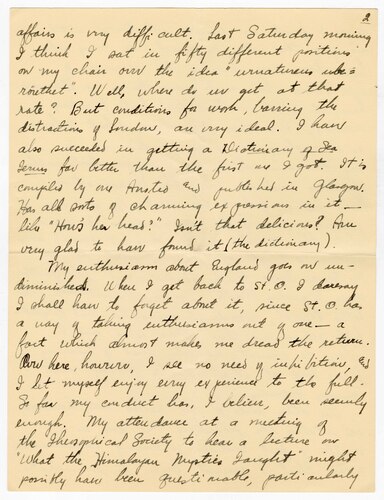 2
affairs is very difficult. Last Saturday morning
I think I sat in fifty different positions
on my chair over the idea "
". Well, where do we get at that
rate? But conditions for work, barring the
distractions of London, are very ideal. I have
also succeeded in getting a Dictionary of Sea
Terms far better than the first one I got. It is
compiled by one Ansted and published in Glasgow.
Has all sorts of charming expressions in it —
like "How's her head?" Isn't that delicious? Am
very glad to have found it (the dictionary).
My enthusiasm about England goes on un-
diminished. When I get back to St. O. I daresay
I shall have to forget about it, since St. O has
a way of taking enthusiasms out of one — a
fact which almost makes me dread the return.
Over here, however, I see no need of inhibition, and
I let myself enjoy every experience to the full.
So far my conduct has, I believe, been seemly
enough. My attendance at a meeting of
the Theosophical Society to hear a lecture on
"What the Himalayan Mystics Taught" might
possibly have been questionable, particularly